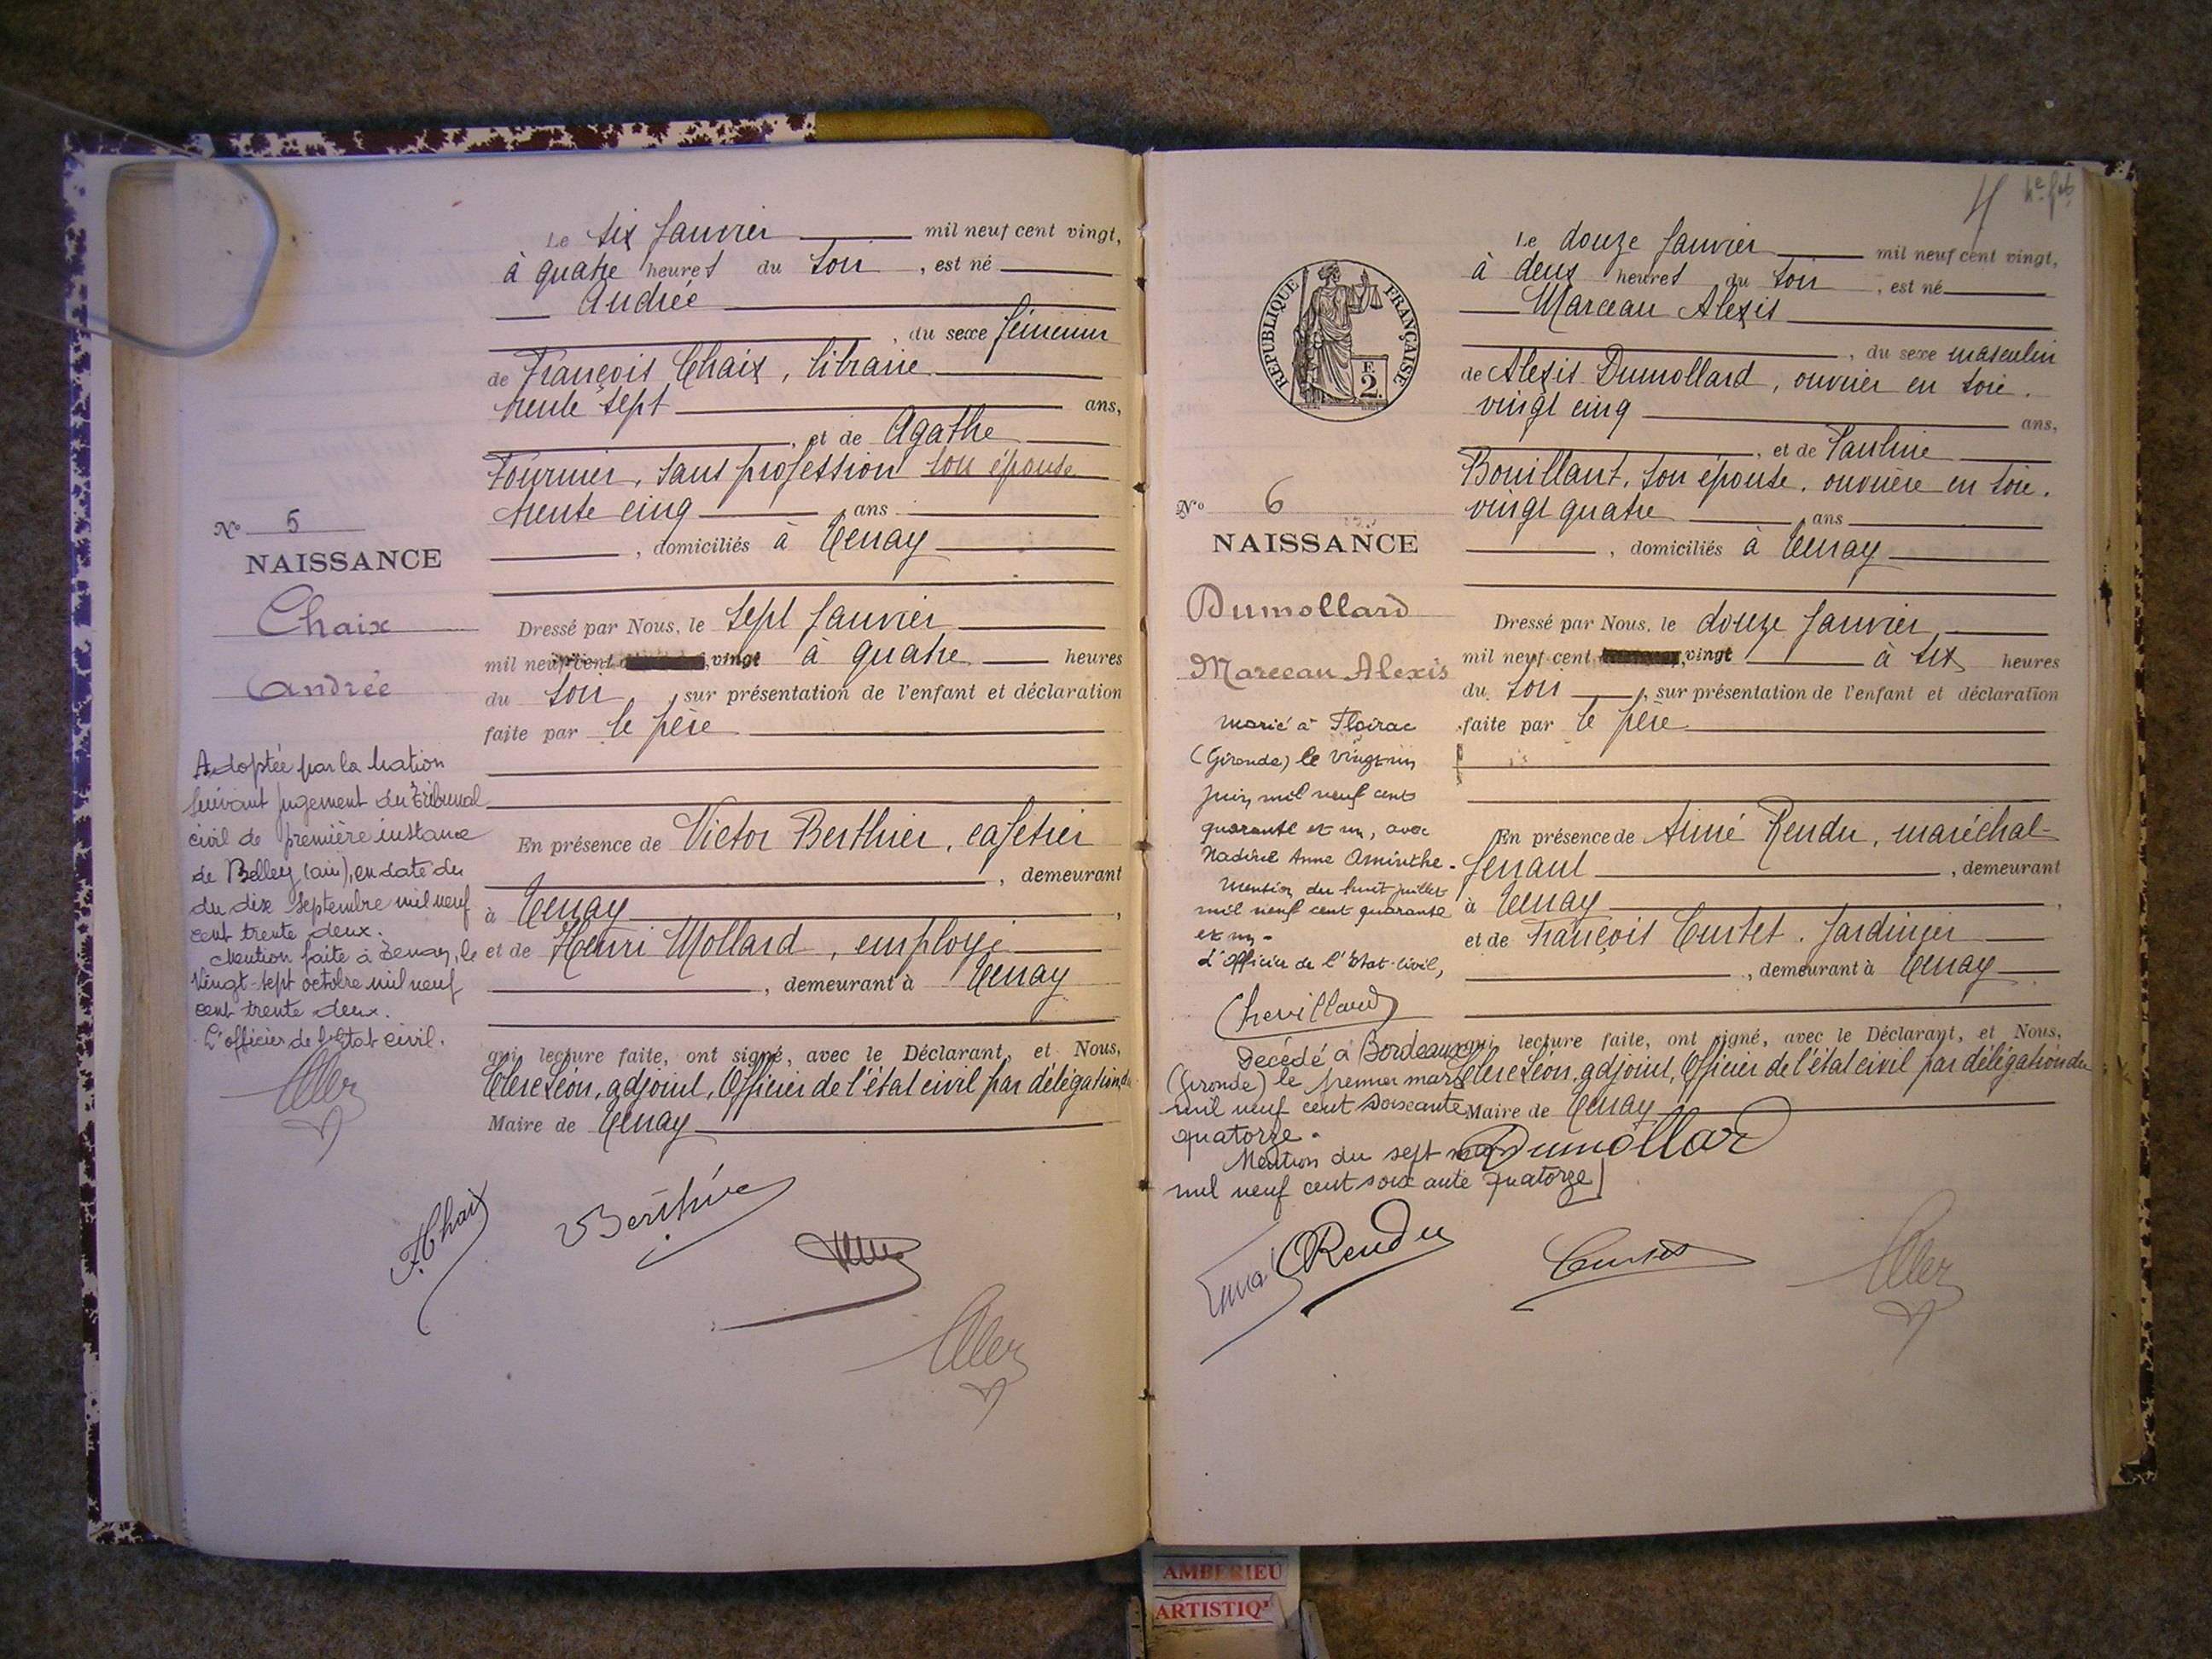 Le six Janvier mil neuf cent vingt,
à quatre heures du soir, est né
Andrée
, du sexe féminin
de François Chaix, libraire
trente sept ans,
, et de Agathe
Fournier, sans profession son épouse
trente cinq ans
, domiciliés à Tenay
Dressé par Nous, le sept Janvier
mil neuf cent vingt à quatre heures
du soir, sur présentation de l'enfant et déclaration
faite par le père
En présence de Victor Berthier, cafetier
, demeurant
à Tenay,
et de Henri Mollard, employé
, demeurant à Tenay
qui lecture faite, ont signé, avec le Déclarant, et Nous,
Clerc Léon, adjoint, Officier de l'état civil par délégation du
Maire de Tenay
N° 5
NAISSANCE
Chaix
Andrée
Adoptée par la Nation
suivant jugement du Tribunal
civil de première instance
de Belley (ain), en date du
du dix septembre mil neuf
cent trente deux.
Mention faite à Tenay, le
Vingt-sept octobre mil neuf
cent trente deux.
L'officier de l'Etat civil.
F. Chaix
VBerthier
4
Le douze Janvier mil neuf cent vingt,
à deux heures du soir, est né
Marceau Alexis
, du sexe masculin
de Alexis Dumollard, ouvrier en soie.
vingt cinq ans,
, et de Pauline
Bouillant, son épouse, ouvrière en soie.
vingt quatre ans
, domiciliés à Tenay
Dressé par Nous, le douze Janvier,
mil neuf cent vingt à six heures
du soir, sur présentation de l'enfant et déclaration
faite par le père
En présence de Aimé Rendu, maréchal-
ferrant, demeurant
à Tenay,
et de François Curtet. Jardinier
, demeurant à Tenay
qui lecture faite, ont signé, avec le Déclarant, et Nous,
Clerc Léon, adjoint, Officier de l'état civil par délégation du
Maire de Tenay
REPUBLIQUE FRANÇAISE
F.
2.
N° 6
NAISSANCE
Dumollard
Marceau Alexis
marié à Floirac
(Gironde) le vingt un
juin mil neuf cent
quarante et un, avec
Anne Aminthe.
Mention du huit juillet
mil neuf cent quarante
et un -
L'Officier de l'Etat-civil,
Chevillard
Decédé à Bordeaux
(Gironde) le premier mars
mil neuf cent soixante
quatorze.
Mention du sept mars
mil neuf cent soixante quatorze
Dumollard
Rendu
Curtet
AMBERIEU
ARTISTIQ